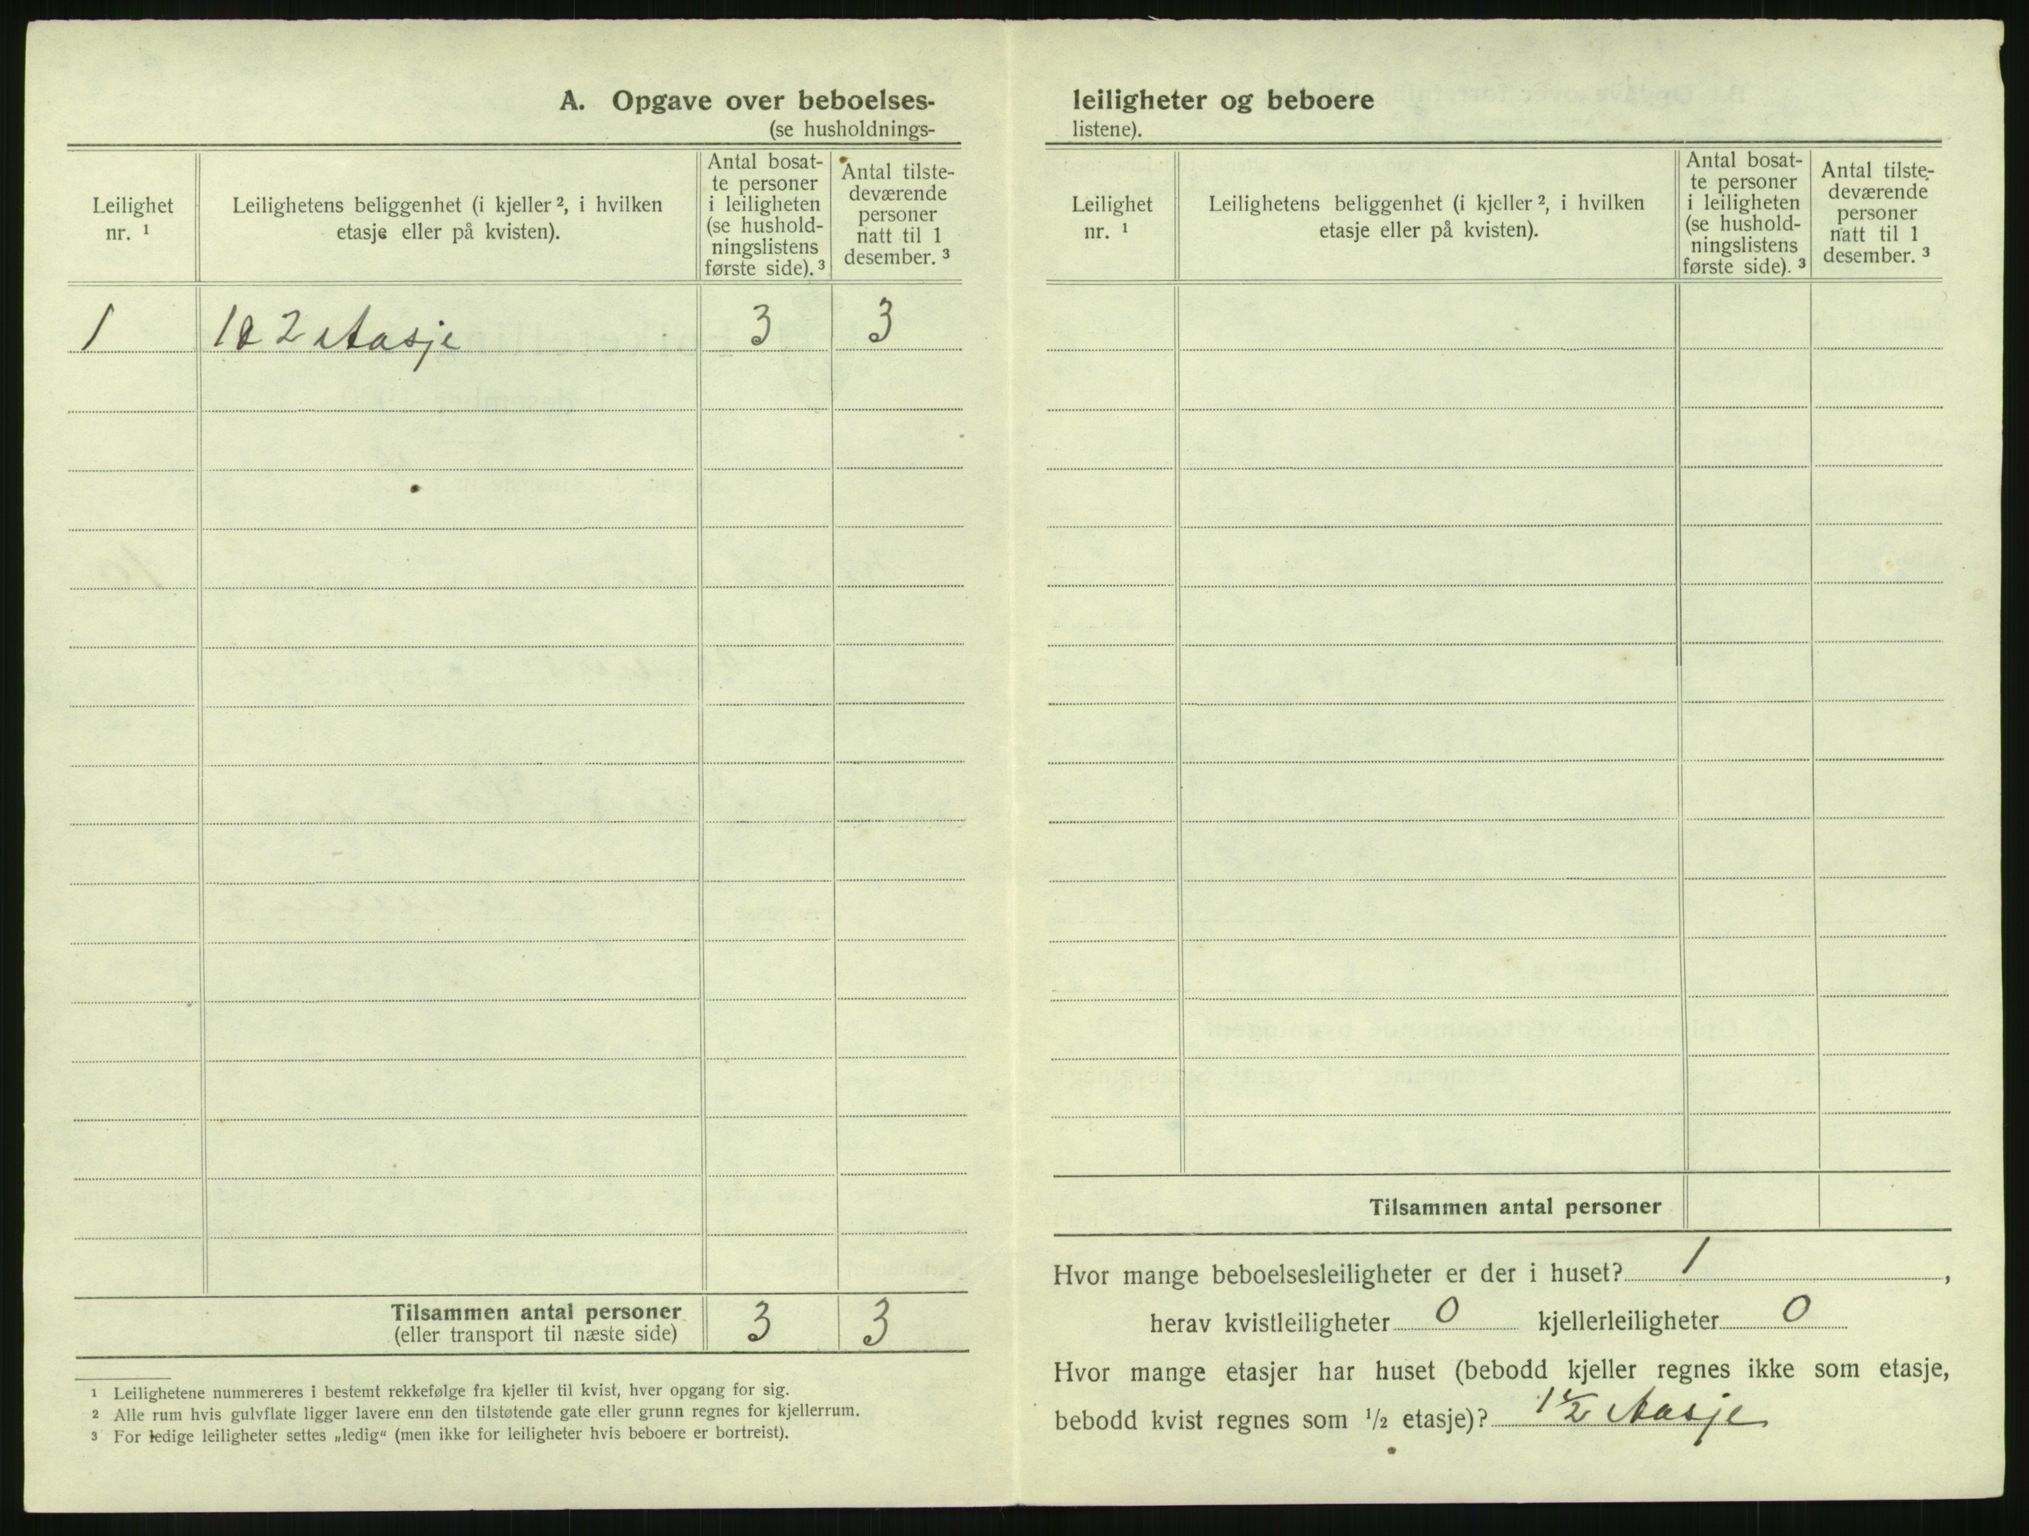 A. Opgave over beboelses-
(se husholdnings-
Leilighet
nr. ¹
Leilighetens beliggenhet (i kjeller ², i hvilken
etasje eller på kvisten).
Antal bosat-
te personer
i leiligheten
(se hushold-
ningslistens
første side). ³
Antal tilste-
deværende
personer
natt til 1
desember. ³
1 1 2 Aasje 3 3
Tilsammen antal personer
(eller transport til næste side)
3 3
¹ Leilighetene nummereres i bestemt rekkefølge fra kjeller til kvist, hver opgang for sig.
² Alle rum hvis gulvflate ligger lavere enn den tilstøtende gate eller grunn regnes for kjellerrum.
³ For ledige leiligheter settes „ledig“ (men ikke for leiligheter hvis beboere er bortreist).
leiligheter og beboere
listene).
Leilighet
nr. ¹
Leilighetens beliggenhet (i kjeller ², i hvilken
etasje eller på kvisten).
Antal bosat-
te personer
i leiligheten
(se hushold-
ningslistens
første side). ³
Antal tilste-
deværende
personer
natt til 1
desember. ³
Tilsammen antal personer
Hvor mange beboelsesleiligheter er der i huset? 1,
herav kvistleiligheter 0 kjellerleiligheter 0
Hvor mange etasjer har huset (bebodd kjeller regnes ikke som etasje,
bebodd kvist regnes som ½ etasje)? 1½ Aasje